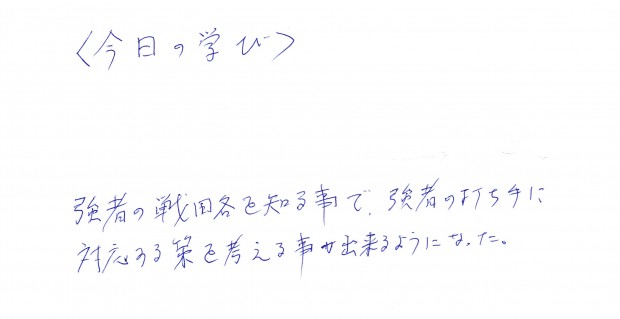 〈今日の学び〉
強者の戦略を知る事で、強者の打ち手に
対応する策を考える事が出来るようになった。